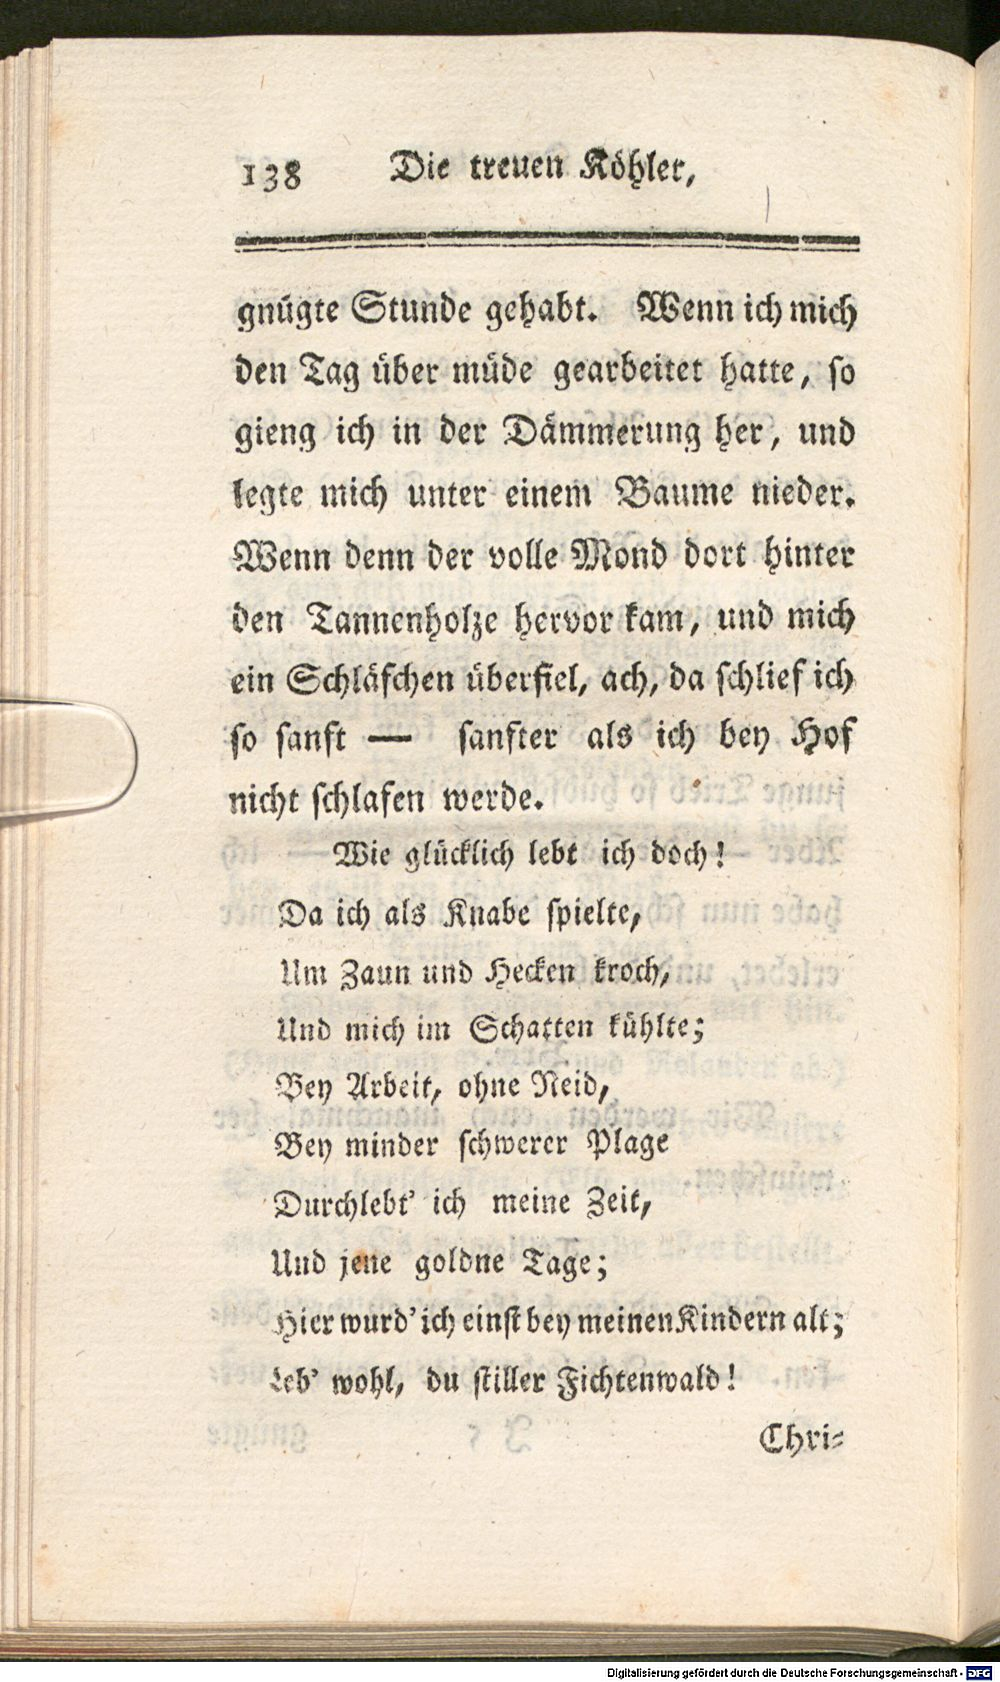 138 Die treuen Köhler,
gnügte Stunde gehabt. Wenn ich mich
den Tag über müde gearbeitet hatte, so
gieng ich in der Dämmerung her, und
legte mich unter einem Baume nieder.
Wenn denn der volle Mond dort hinter
den Tannenholze hervor kam, und mich
ein Schläfchen überfiel, ach, da schlief ich
so sanft — sanfter als ich bey Hof
nicht schlafen werde.
Wie glücklich lebt ich doch!
Da ich als Knabe spielte,
Um Zaun und Hecken kroch,
Und mich im Schatten kühlte;
Bey Arbeit, ohne Neid,
Bey minder schwerer Plage
Durchlebt' ich meine Zeit,
Und jene goldne Tage;
Hier wurd' ich einst bey meinen Kindern alt;
Leb' wohl, du stiller Fichtenwald!
Chri-
Digitalisierung gefördert durch die Deutsche Forschungsgemeinschaft - DFG